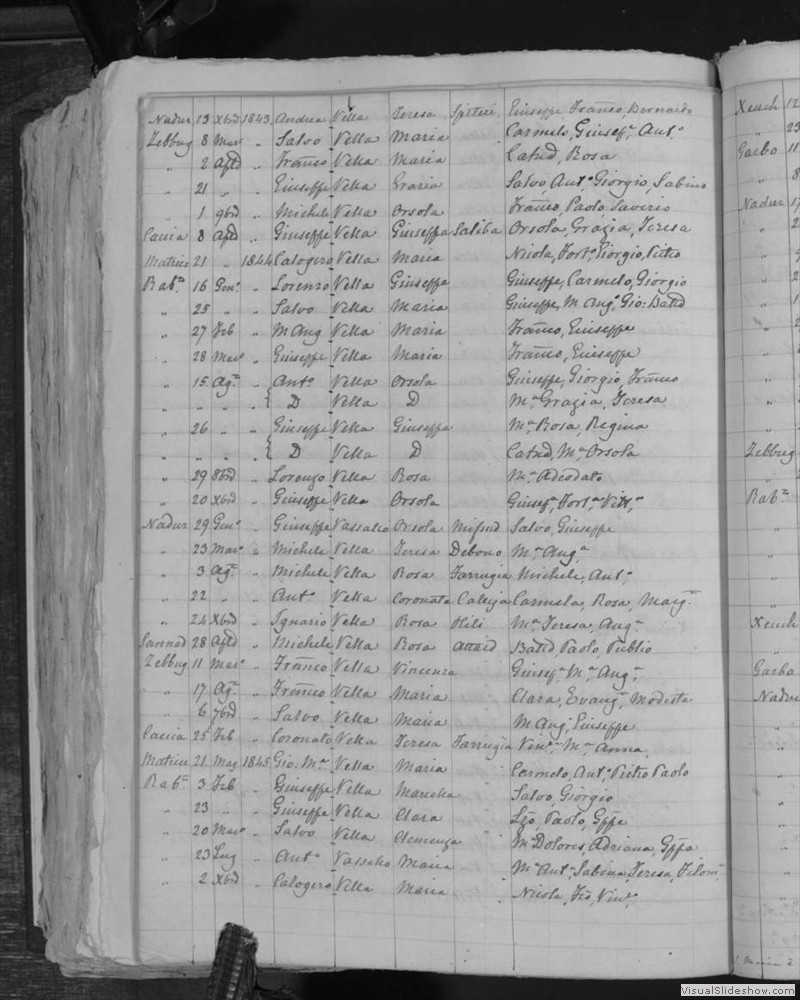 Nadur 13 Xbd 1843 Andrea Vella Teresa Spiteri Giuseppe, Franco, Bernardo
Zebbug 8 Mar „ Salvo Vella Maria Carmelo, Giusep.ª Ant.º
„ 2 Apld „ Franco Vella Maria Catnd, Rosa
„ 21 „ „ Giuseppe Vella Grazia Salvo, Ant.º Giorgio, Sabino
„ 1 9bd „ Michele Vella Orsola Franco, Paolo Saverio
Caccia 8 Apld „ Giuseppe Vella Giuseppa Saliba Orsola, Grazia, Teresa
Matrice 21 „ 1844 Calogero Vella Maria Nicola, Fort.º Giorgio, Pietro
Rab.º 16 Gen.º „ Lorenzo Vella Giuseppa Giuseppe, Carmelo, Giorgio
„ 25 „ „ Salvo Vella Maria Giuseppe, M. Ang.º Gio: Battd
„ 27 Feb „ M. Ang Vella Maria Franco, Giuseppe
„ 28 Mar.º „ Giuseppe Vella Maria Franco, Giuseppe
„ 15 Ag.º „ Ant.º Vella Orsola Giuseppe, Giorgio, Franco
„ „ „ „ { D Vella D M.ª Grazia, Teresa
„ 26 „ „ Giuseppe Vella Giuseppa M.ª Rosa, Regina
„ „ „ „ { D Vella D Catnd, M.ª Orsola
„ 29 8bd „ Lorenzo Vella Rosa M.ª Adeodato
„ 20 Xbd „ Giuseppe Vella Orsola Giusep.ª Fort.ª Vitt.ª
Nadur 29 Gen.º „ Giuseppe Vassallo Orsola Mifsud Salvo, Giuseppe
„ 23 Mar.º „ Michele Vella Teresa Debono M.ª Aug.ª
„ 3 Ag.º „ Michele Vella Rosa Farrugia Michele, Ant.º
„ 22 „ „ Ant.º Vella Coronata Calleja Carmela, Rosa, Marg.ª
„ 24 Xbd „ Ignazio Vella Rosa Hili M.ª Teresa, Aug.ª
Sannad 28 Apld „ Michele Vella Rosa Attard Battd, Paolo, Publio
Zebbug 11 Mar.º „ Franco Vella Vincenza Giusep.ª M.ª Aug.ª
„ 17 Ag.º „ Franco Vella Maria Clara, Evang.ª Modesta
„ 6 7bd „ Salvo Vella Maria M. Ang.º Giuseppe
Caccia 25 Feb „ Coronato Vella Teresa Farrugia Vin.ª M.ª Anna
Matrice 21 Mag 1845 Gio. M.ª Vella Maria Carmelo, Ant.º Pietro Paolo
Rab.º 3 Feb „ Giuseppe Vella Marella Salvo, Giorgio
„ 23 „ „ Giuseppe Vella Clara Paolo, Gppe
„ 20 Mar.º „ Salvo Vella Clemenza M.ª Dolores, Adriana, Gppa
„ 23 Lug „ Ant.º Vassallo Maria M.ª Ant.ª Sabina, Teresa, Filom.
„ 2 Xbd „ Calogero Vella Maria Nicola, Fco, Vin.º
Xeuch 12
„ 23
Garbo 11
„ 8
Nadur 17
Zebbug
Rab.º
Xeuch
Garbo
Nadur
VisualSlideshow.com